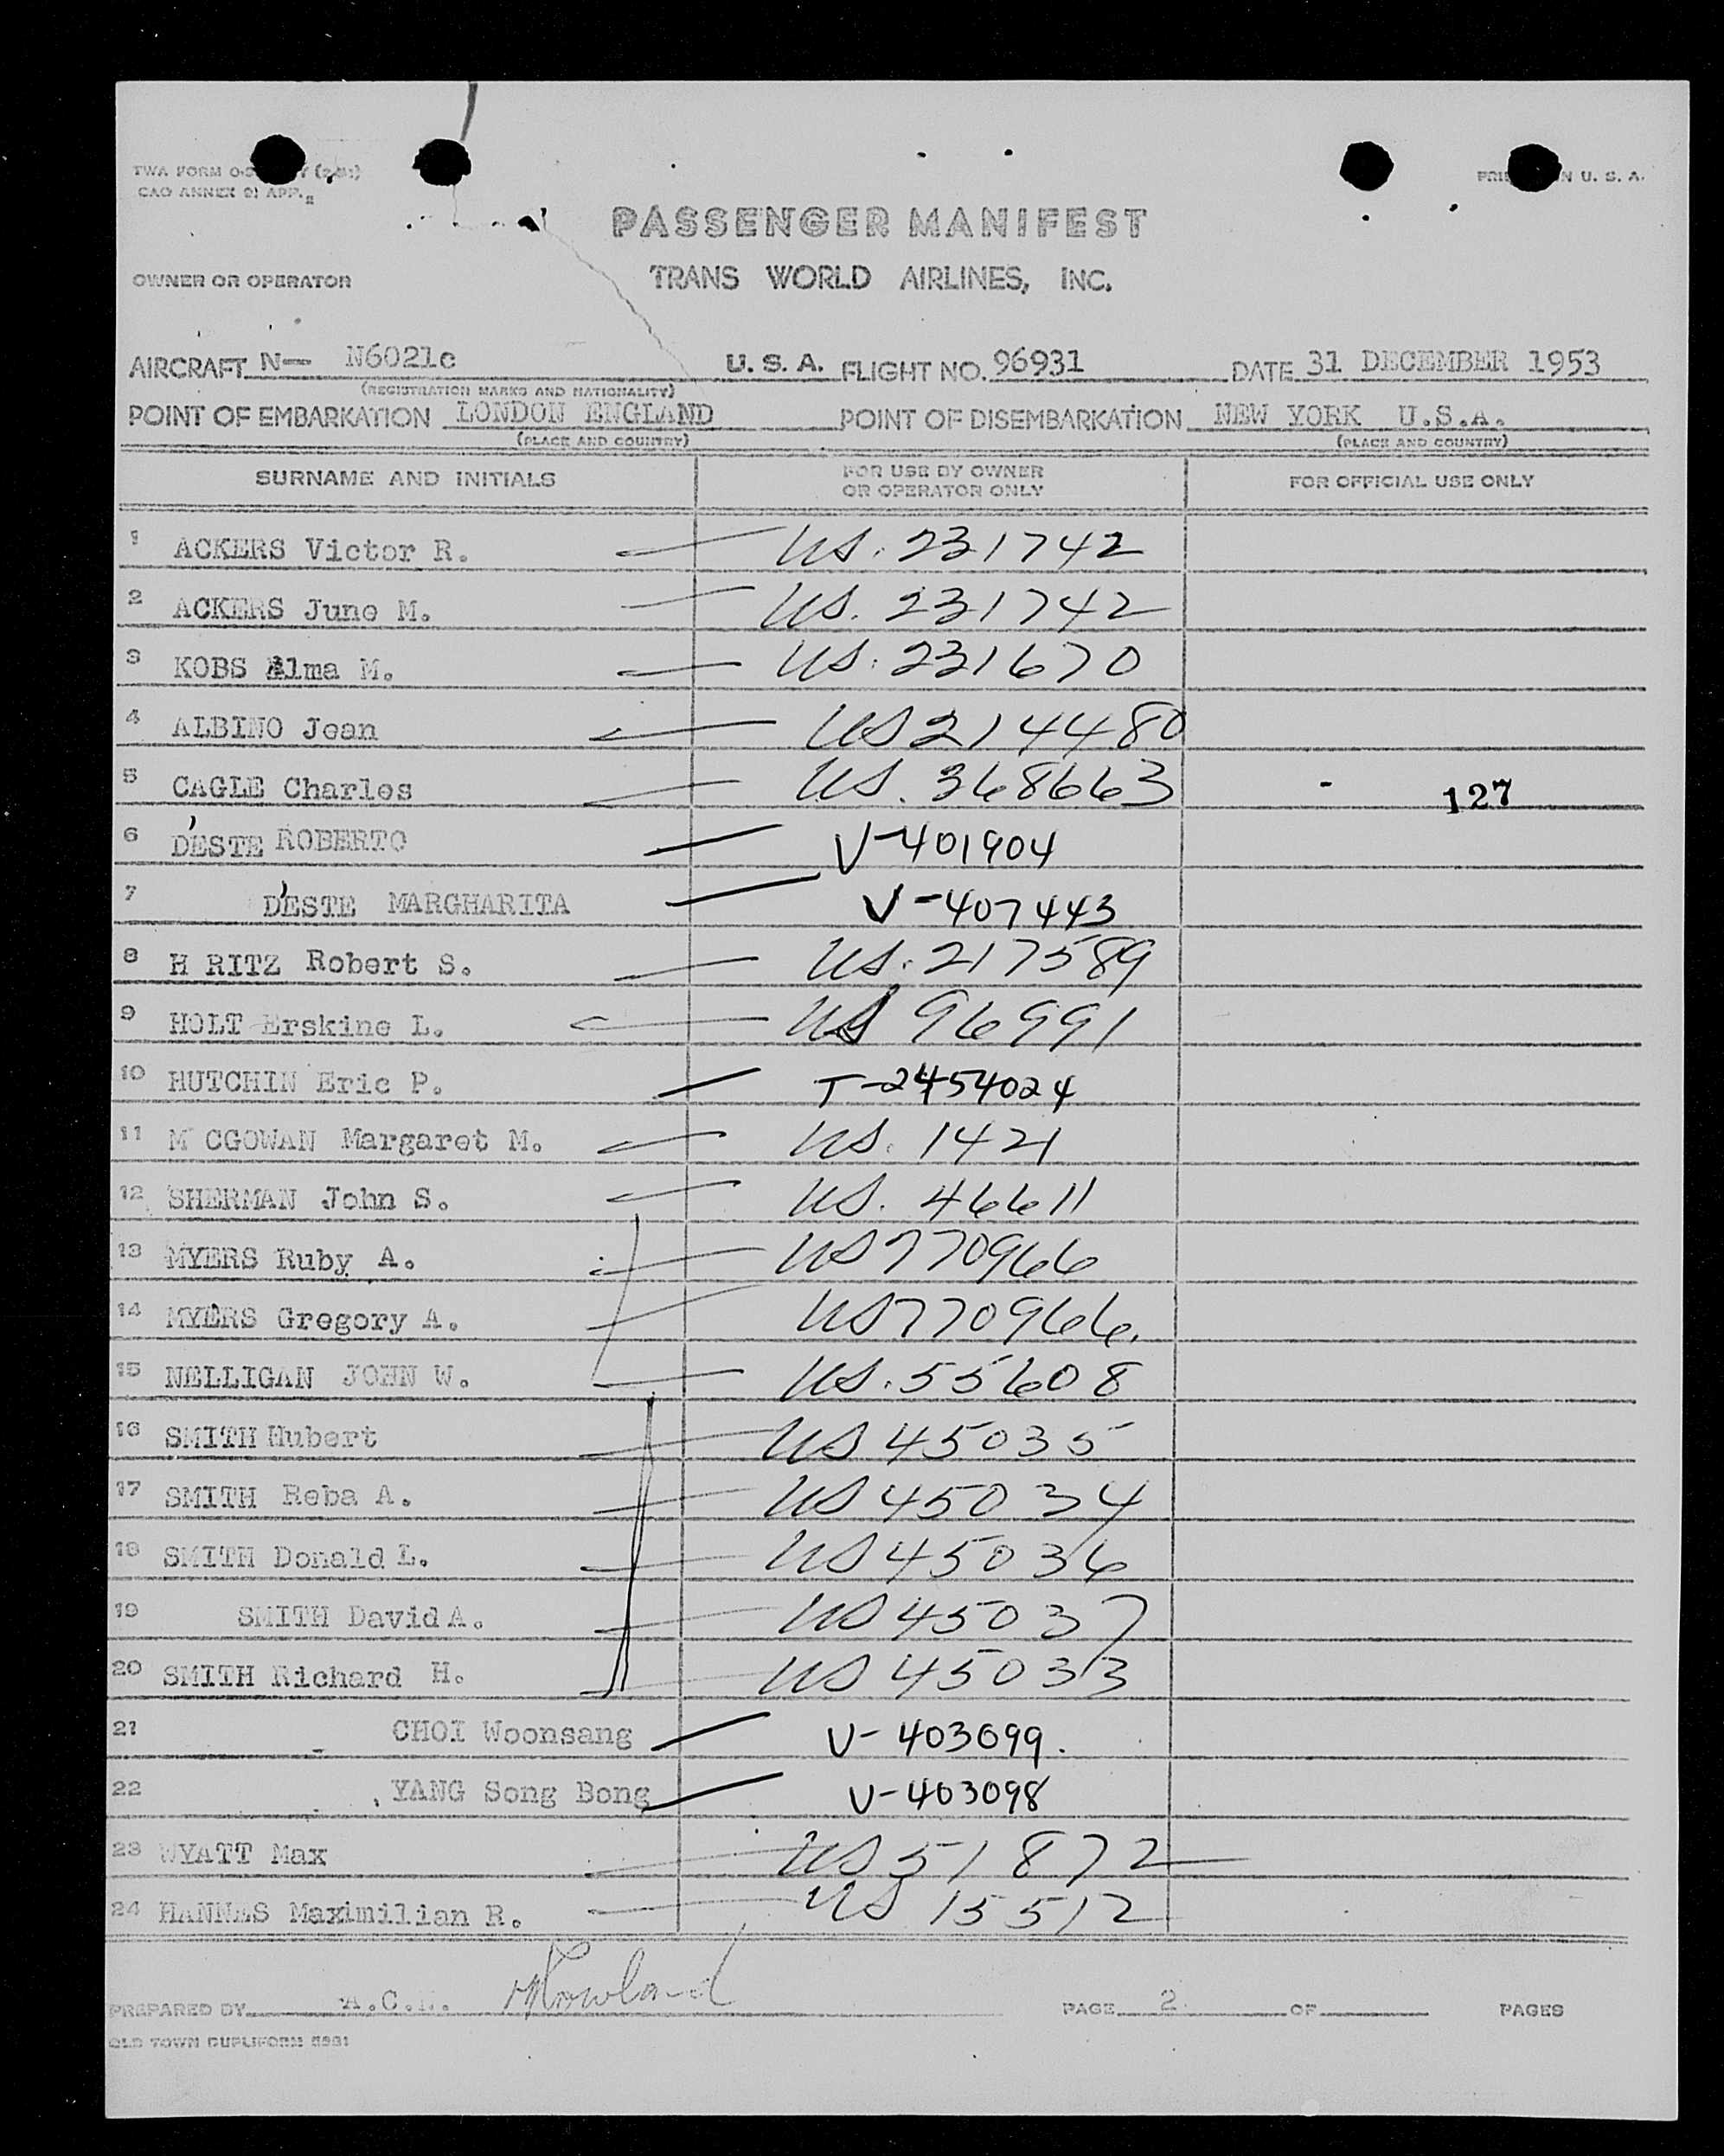 TWA FORM O-
CAO ANNEX 9; APP.
U. S. A.
PASSENGER MANIFEST
OWNER OR OPERATOR
TRANS WORLD AIRLINES, INC.
AIRCRAFT N— N6021c U. S. A. FLIGHT NO. 96931 DATE 31 DECEMBER 1953
(REGISTRATION MARKS AND NATIONALITY)
POINT OF EMBARKATION LONDON ENGLAND POINT OF DISEMBARKATION NEW YORK U.S.A.
(PLACE AND COUNTRY) (PLACE AND COUNTRY)
SURNAME AND INITIALS FOR USE BY OWNER OR OPERATOR ONLY FOR OFFICIAL USE ONLY
1 ACKERS Victor R. US. 231742
2 ACKERS June M. US. 231742
3 KOBS Alma M. US. 231670
4 ALBINO Jean US 214480
5 CAGLE Charles US. 368663 - 127
6 D'ESTE ROBERTO V-401904
7 D'ESTE MARGHARITA V-407443
8 H RITZ Robert S. US. 217589
9 HOLT Erskine L. US 96991
10 HUTCHIN Eric P. T-2454024
11 M CGOWAN Margaret M. US. 1421
12 SHERMAN John S. US. 46611
13 MYERS Ruby A. US 770966
14 MYERS Gregory A. US 770966.
15 NELLIGAN JOHN W. US. 55608
16 SMITH Hubert US 45035
17 SMITH Reba A. US 45034
18 SMITH Donald L. US 45036
19 SMITH David A. US 45037
20 SMITH Richard H. US 45033
21 CHOI Woonsang V-403099.
22 YANG Song Bong V-403098
23 WYATT Max US 51872
24 HANNES Maximilian R. US 15512
PREPARED BY A.C. PAGE 2 OF PAGES
OLD TOWN DUPLIFORM